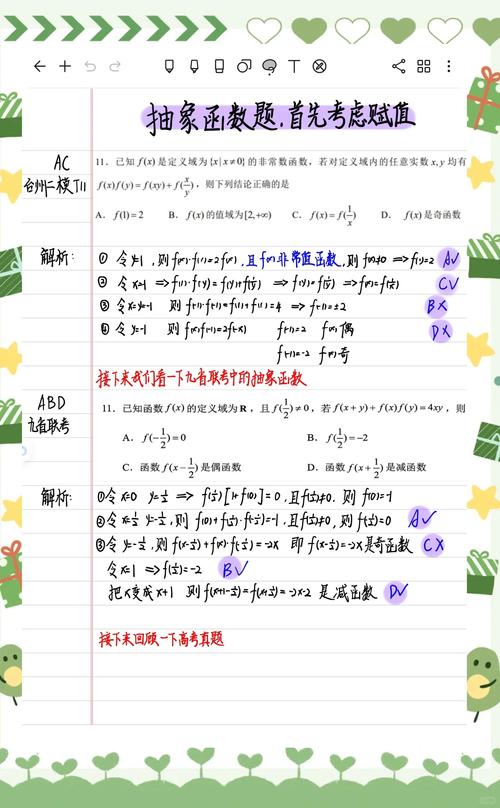 抽象函数题.首先考虑赋值
AC
台州二模T11
11. 已知 f(x) 是定义域为 {x|x≠0} 的非常数函数，若对定义域内的任意实数 x, y 均有
f(x)f(y)=f(xy)+f(x/y)，则下列结论正确的是
A. f(1)=2 B. f(x) 的值域为[2,+∞) C. f(x)=f(1/x) D. f(x) 是奇函数
解析:
① 令y=1, 则 f(x)·f(1)=2f(x), 且f(x)非常值函数, 则f(x)≠0 ⇒ f(1)=2 A√
② 令x=1 ⇒ f(1)·f(y)=f(y)+f(1/y) ⇒ f(y)=f(1/y) ⇒ f(x)=f(1/x) C√
③ 令x=y=-1 则 f(-1)·f(-1)=f(1)+f(1)=4 ⇒ f(-1)=±2 B×
④ 令y=-1 则 f(x)f(-1)=2f(-x) f(-1)=2 f(x)偶 D×
f(-1)=-2 f(x)奇
接下来我们看一下九省联考中的抽象函数
ABD
九省联考
11. 已知函数 f(x) 的定义域为 R，且 f(1/2)≠0，若 f(x+y)+f(x)f(y)=4xy，则
A. f(-1/2)=0 B. f(1/2)=-2
C. 函数 f(x-1/2) 是偶函数 D. 函数 f(x+1/2) 是减函数
解析:
① 令x=0 y=1/2 ⇒ f(1/2)[1+f(0)]=0, 且f(1/2)≠0, 则 f(0)=-1
② 令x=1/2 y=-1/2, 则 f(0)+f(1/2)·f(-1/2)=-1, 且f(1/2)≠0, 则 f(-1/2)=0 A√
③ 令y=-1/2, 则f(x-1/2)+f(x)·f(-1/2)=-2x 即 f(x-1/2)=-2x是奇函数 C×
令x=1 ⇒ f(1/2)=-2 B√
把x变成x+1 则 f(x+1-1/2)=f(x+1/2)=-2x-2 是减函数 D√
接下来回顾一下高考真题